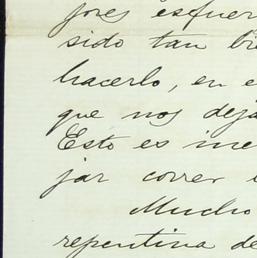 jores esfuer
sido tan bie
hacerlo, en e
que nos deja
Esto es ine
jar correr
Mucho
repentina de